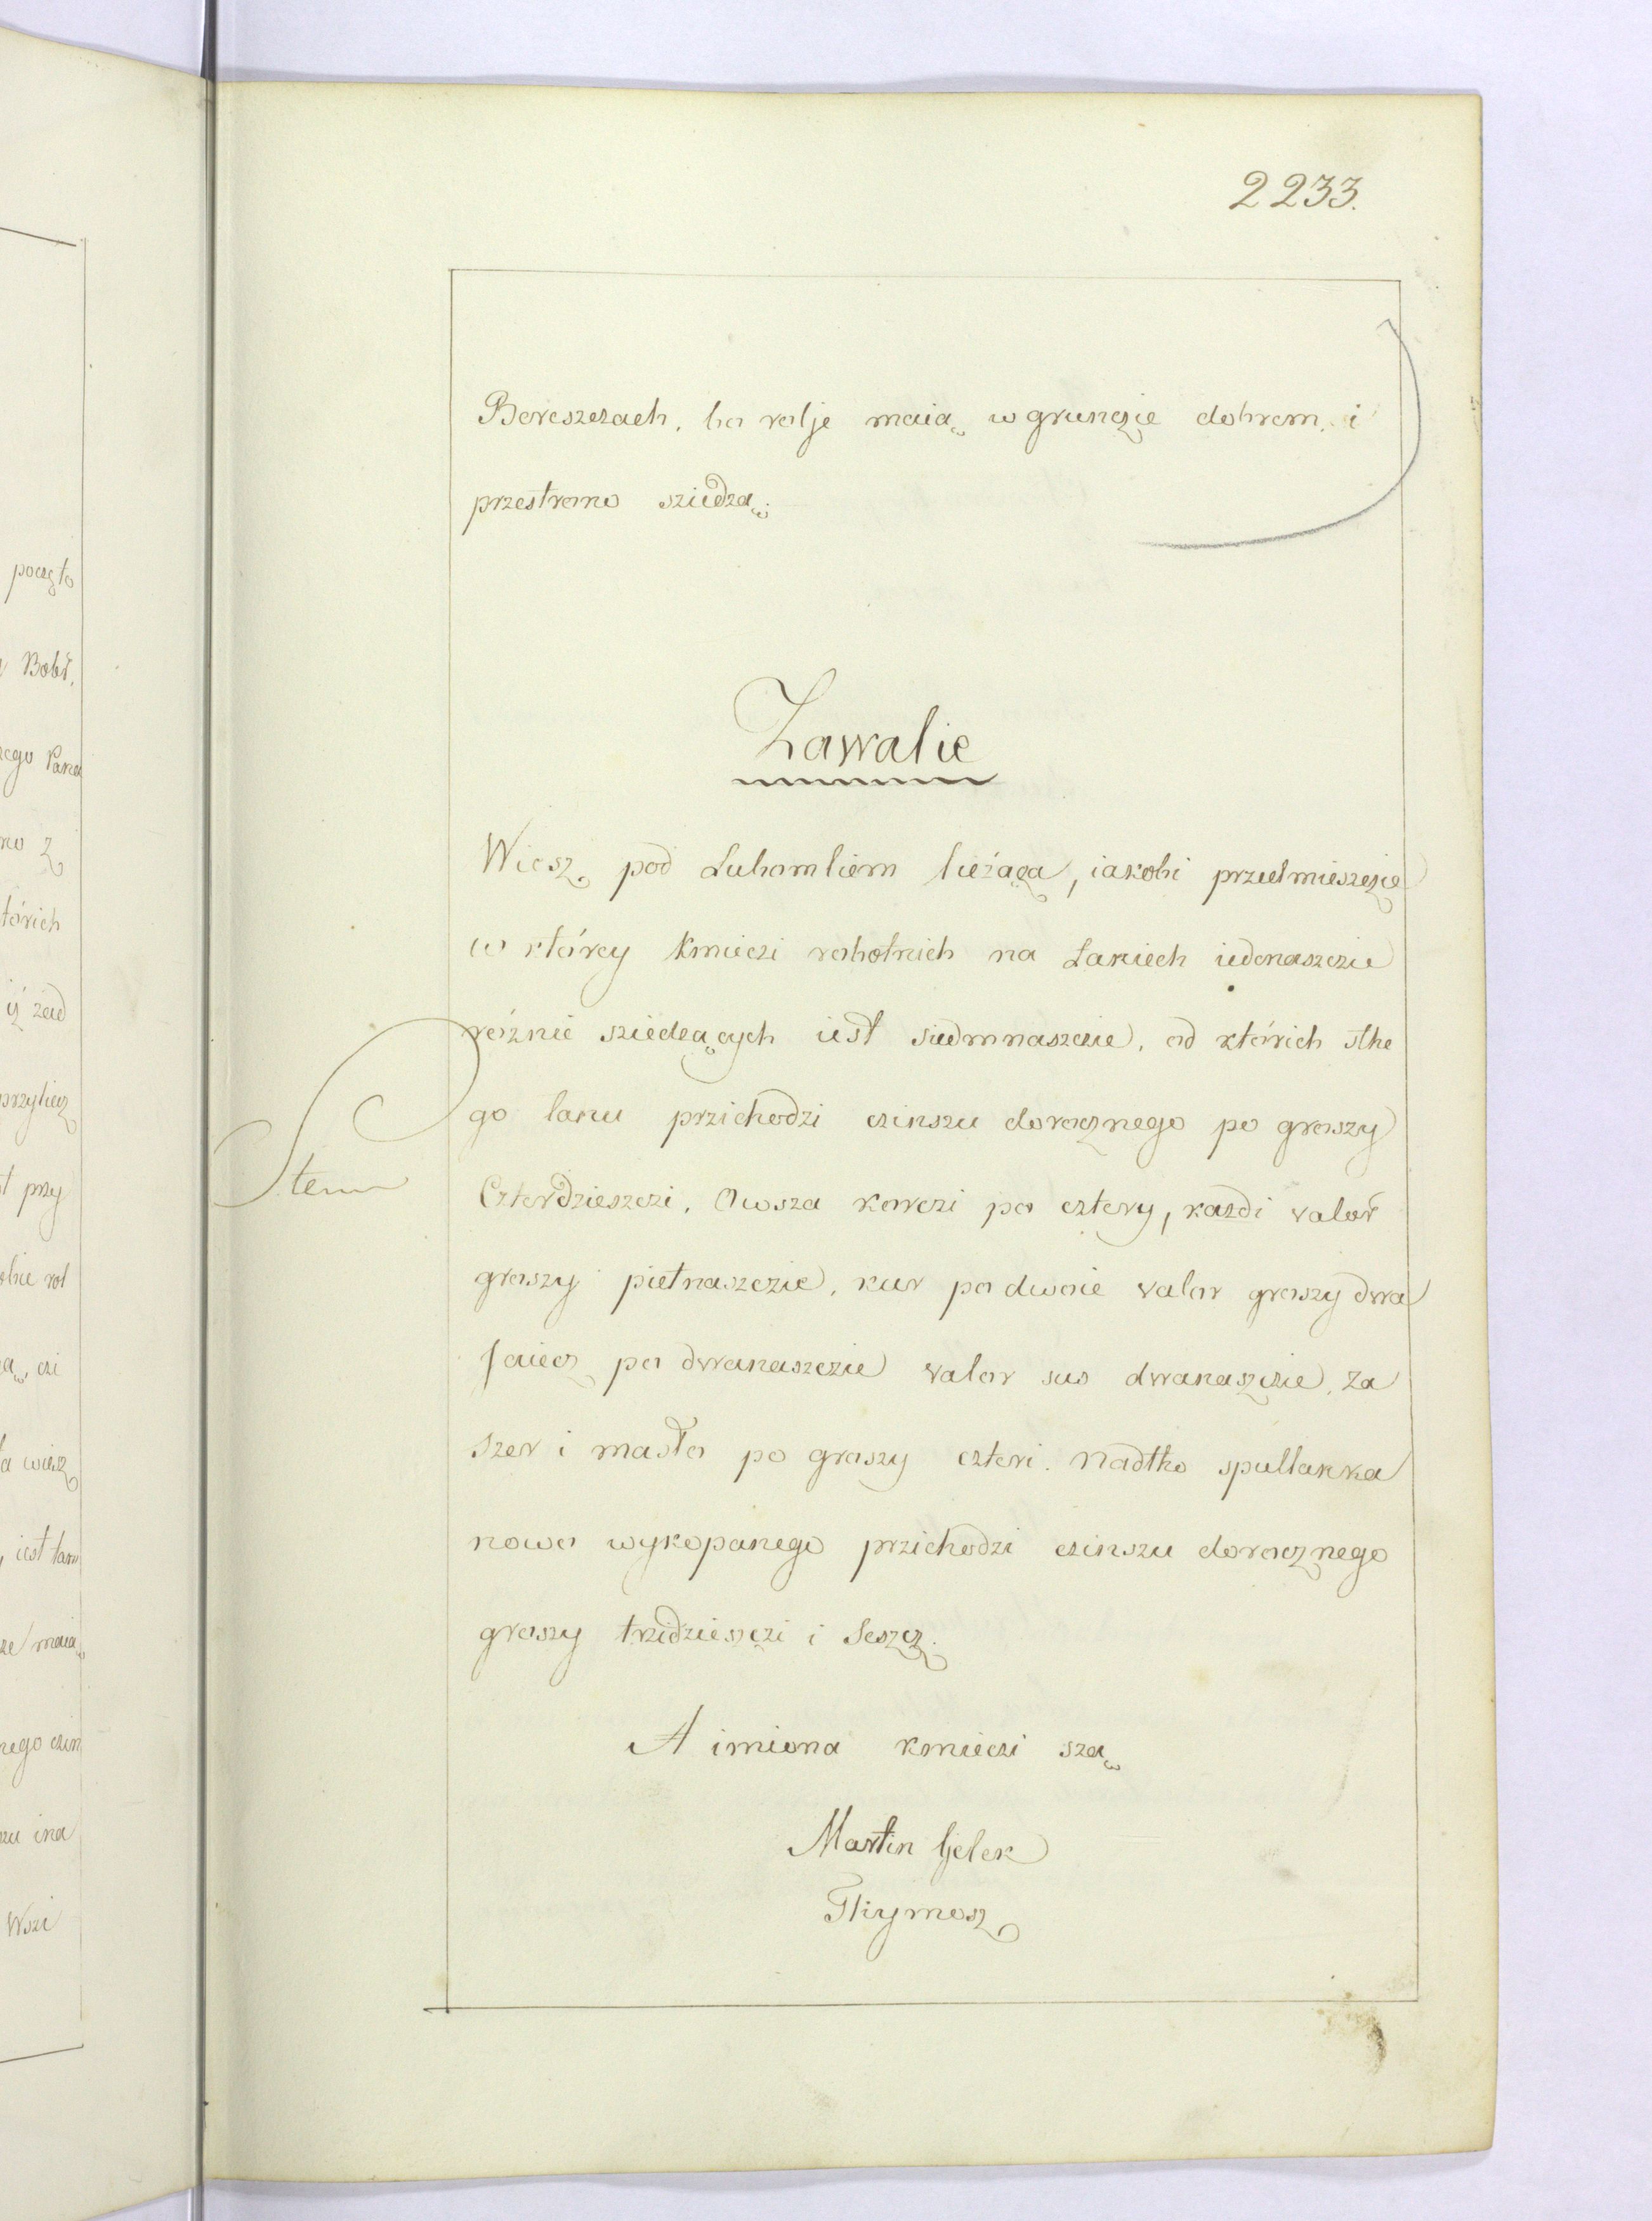 2233.
Bereszezach, bo rolje maią w grunczie dobrem, i
przestrono sziedzą.
Zawalie
Wiesz pod Luhomliem lieżąca, iakobi przedmieszczie
w ktorey kmieczi robotnich na Łaniech iedenaszczie
różnie sziedzących iest siedmnaszczie, od których słhe
go lanu przichodzi czinszu dorocznego po groszy
Item
Czterdzieszczi, Owsza korczi po cztery, każdi valor
groszy pietnaszczie, kur po dwoie valor groszy dwa
Jaiecz po dwanaszczie valor sus dwanaszczie, za
szer i masło po groszy czteri. Nadtho spullanka
nowo wykopanego przichodzi czinszu dorocznego
groszy trzidzieszczi i Seszcz.
A imiona kmieczi szą
Martin Gelek
Thymosz
poczęto
Bobř,
ego Pana
no z
tórich
iż zad
przyliecz
t przy
olnie rol
ą, czi
ta wiesz
, iest tam
ze maią
nego czin
zu ina
Wszi